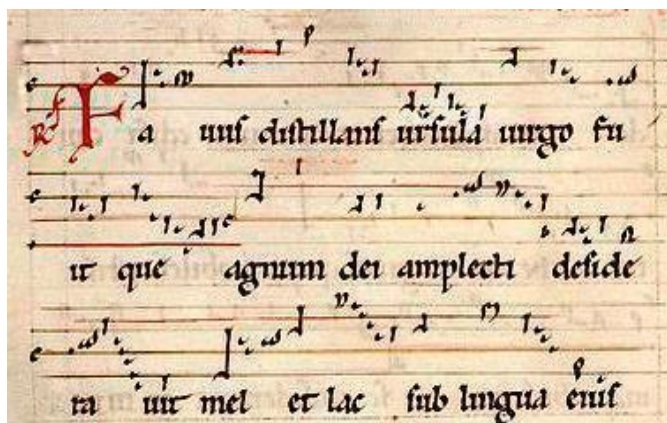 R̃ Fa uus distillans ursula uirgo fu
it que agnum dei amplecti deside
ra uit mel et lac sub lingua eius